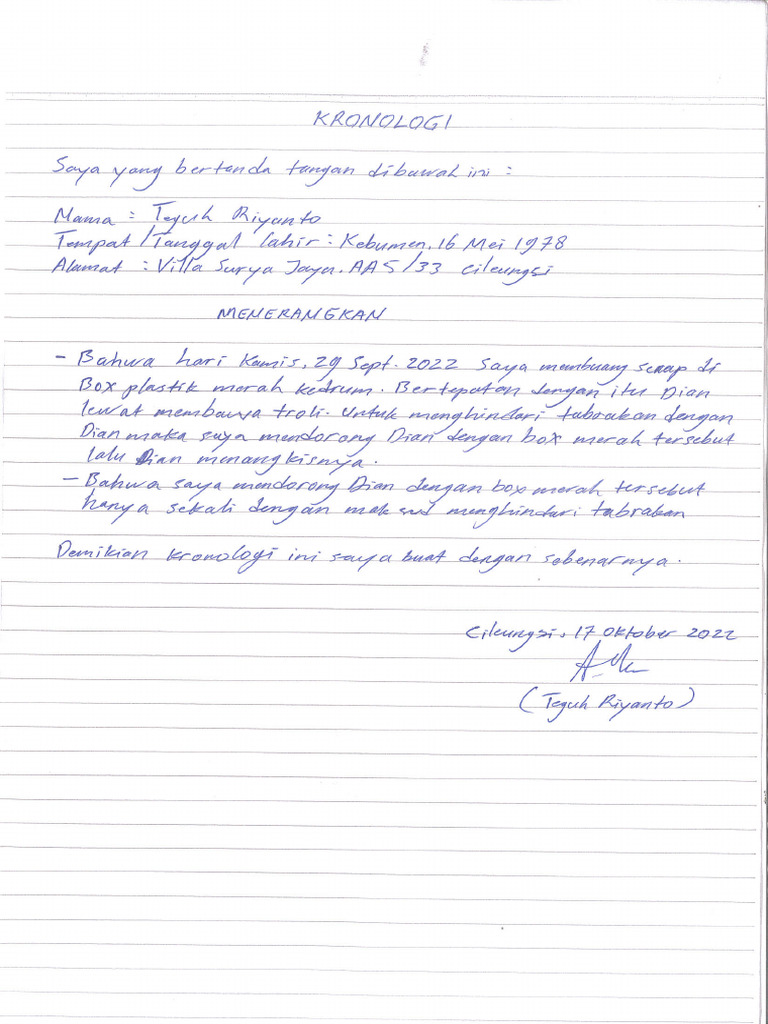 KRONOLOGI
Saya yang bertanda tangan dibawah ini :
Nama : Teguh Riyanto
Tempat/Tanggal lahir : Kebumen, 16 Mei 1978
Alamat : Villa Surya Jaya. AA5/33 Cileungsi
MENERANGKAN
- Bahwa hari Kamis, 29 Sept. 2022 Saya membuang scrap di
Box plastik merah kedrum. Bertepatan dengan itu Dian
lewat membawa troli. Untuk menghindari tabrakan dengan
Dian maka saya mendorong Dian dengan box merah tersebut
lalu Dian menangkisnya.
- Bahwa saya mendorong Dian dengan box merah tersebut
hanya sekali dengan maksud menghindari tabrakan
Demikian kronologi ini saya buat dengan sebenarnya.
Cileungsi, 17 Oktober 2022
(Teguh Riyanto)